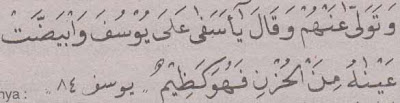 وَتَوَلّٰى عَنْهُمْ وَقَالَ يٰٓأَسَفٰى عَلٰى يُوْسُفَ وَابْيَضَّتْ
عَيْنٰهُ مِنَ الْحُزْنِ فَهُوَ كَظِيْمٌ .. يوسف ٨٤
nya :